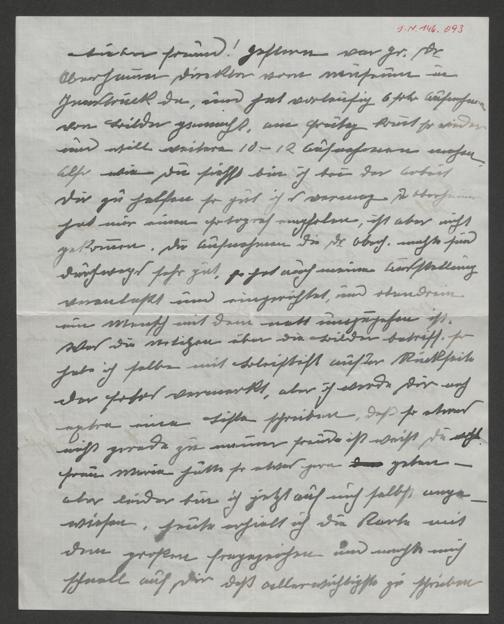 I.N. 146.093
Lieber Freund! Gestern war Hr. Dr.
Oberhammer Direktor vom Museum in
Innsbruck da, und hat vorläufig 6 Aufnahmen
von Bilder gemacht, am Freitag kommt er wieder
und will weitere 10-12 Aufnahmen machen,
Also wie Du siehst bin ich bei der Arbeit
Dir zu helfen so gut ich es vermag. Dr. Oberhammer
hat mir einen Fotograf empfohlen, ist aber nicht
gekommen. Die Aufnahmen die Dr. Oberh. machte sind
durchwegs sehr gut, er hat auch meine Ausstellung
veranlaßt und eingerichtet, und obendrein
ein Mensch mit dem nett umzugehen ist.
Was die Notizen über die Bilder betrifft, so
habe ich selbe mit Bleistift auf der Rückseite
der Fotos vermerkt, aber ich werde Dir noch
extra eine Liste schreiben, daß so etwas
nicht gerade zu meiner Freude ist weißt Du
Frau Maria hätte so etwas gern geben –
aber leider bin ich jetzt auf mich selbst ange-
wiesen. Heute erhielt ich die Karte mit
dem großen Fragezeichen und machte mich
schnell auf Dir das allerwichtigste zu schreiben